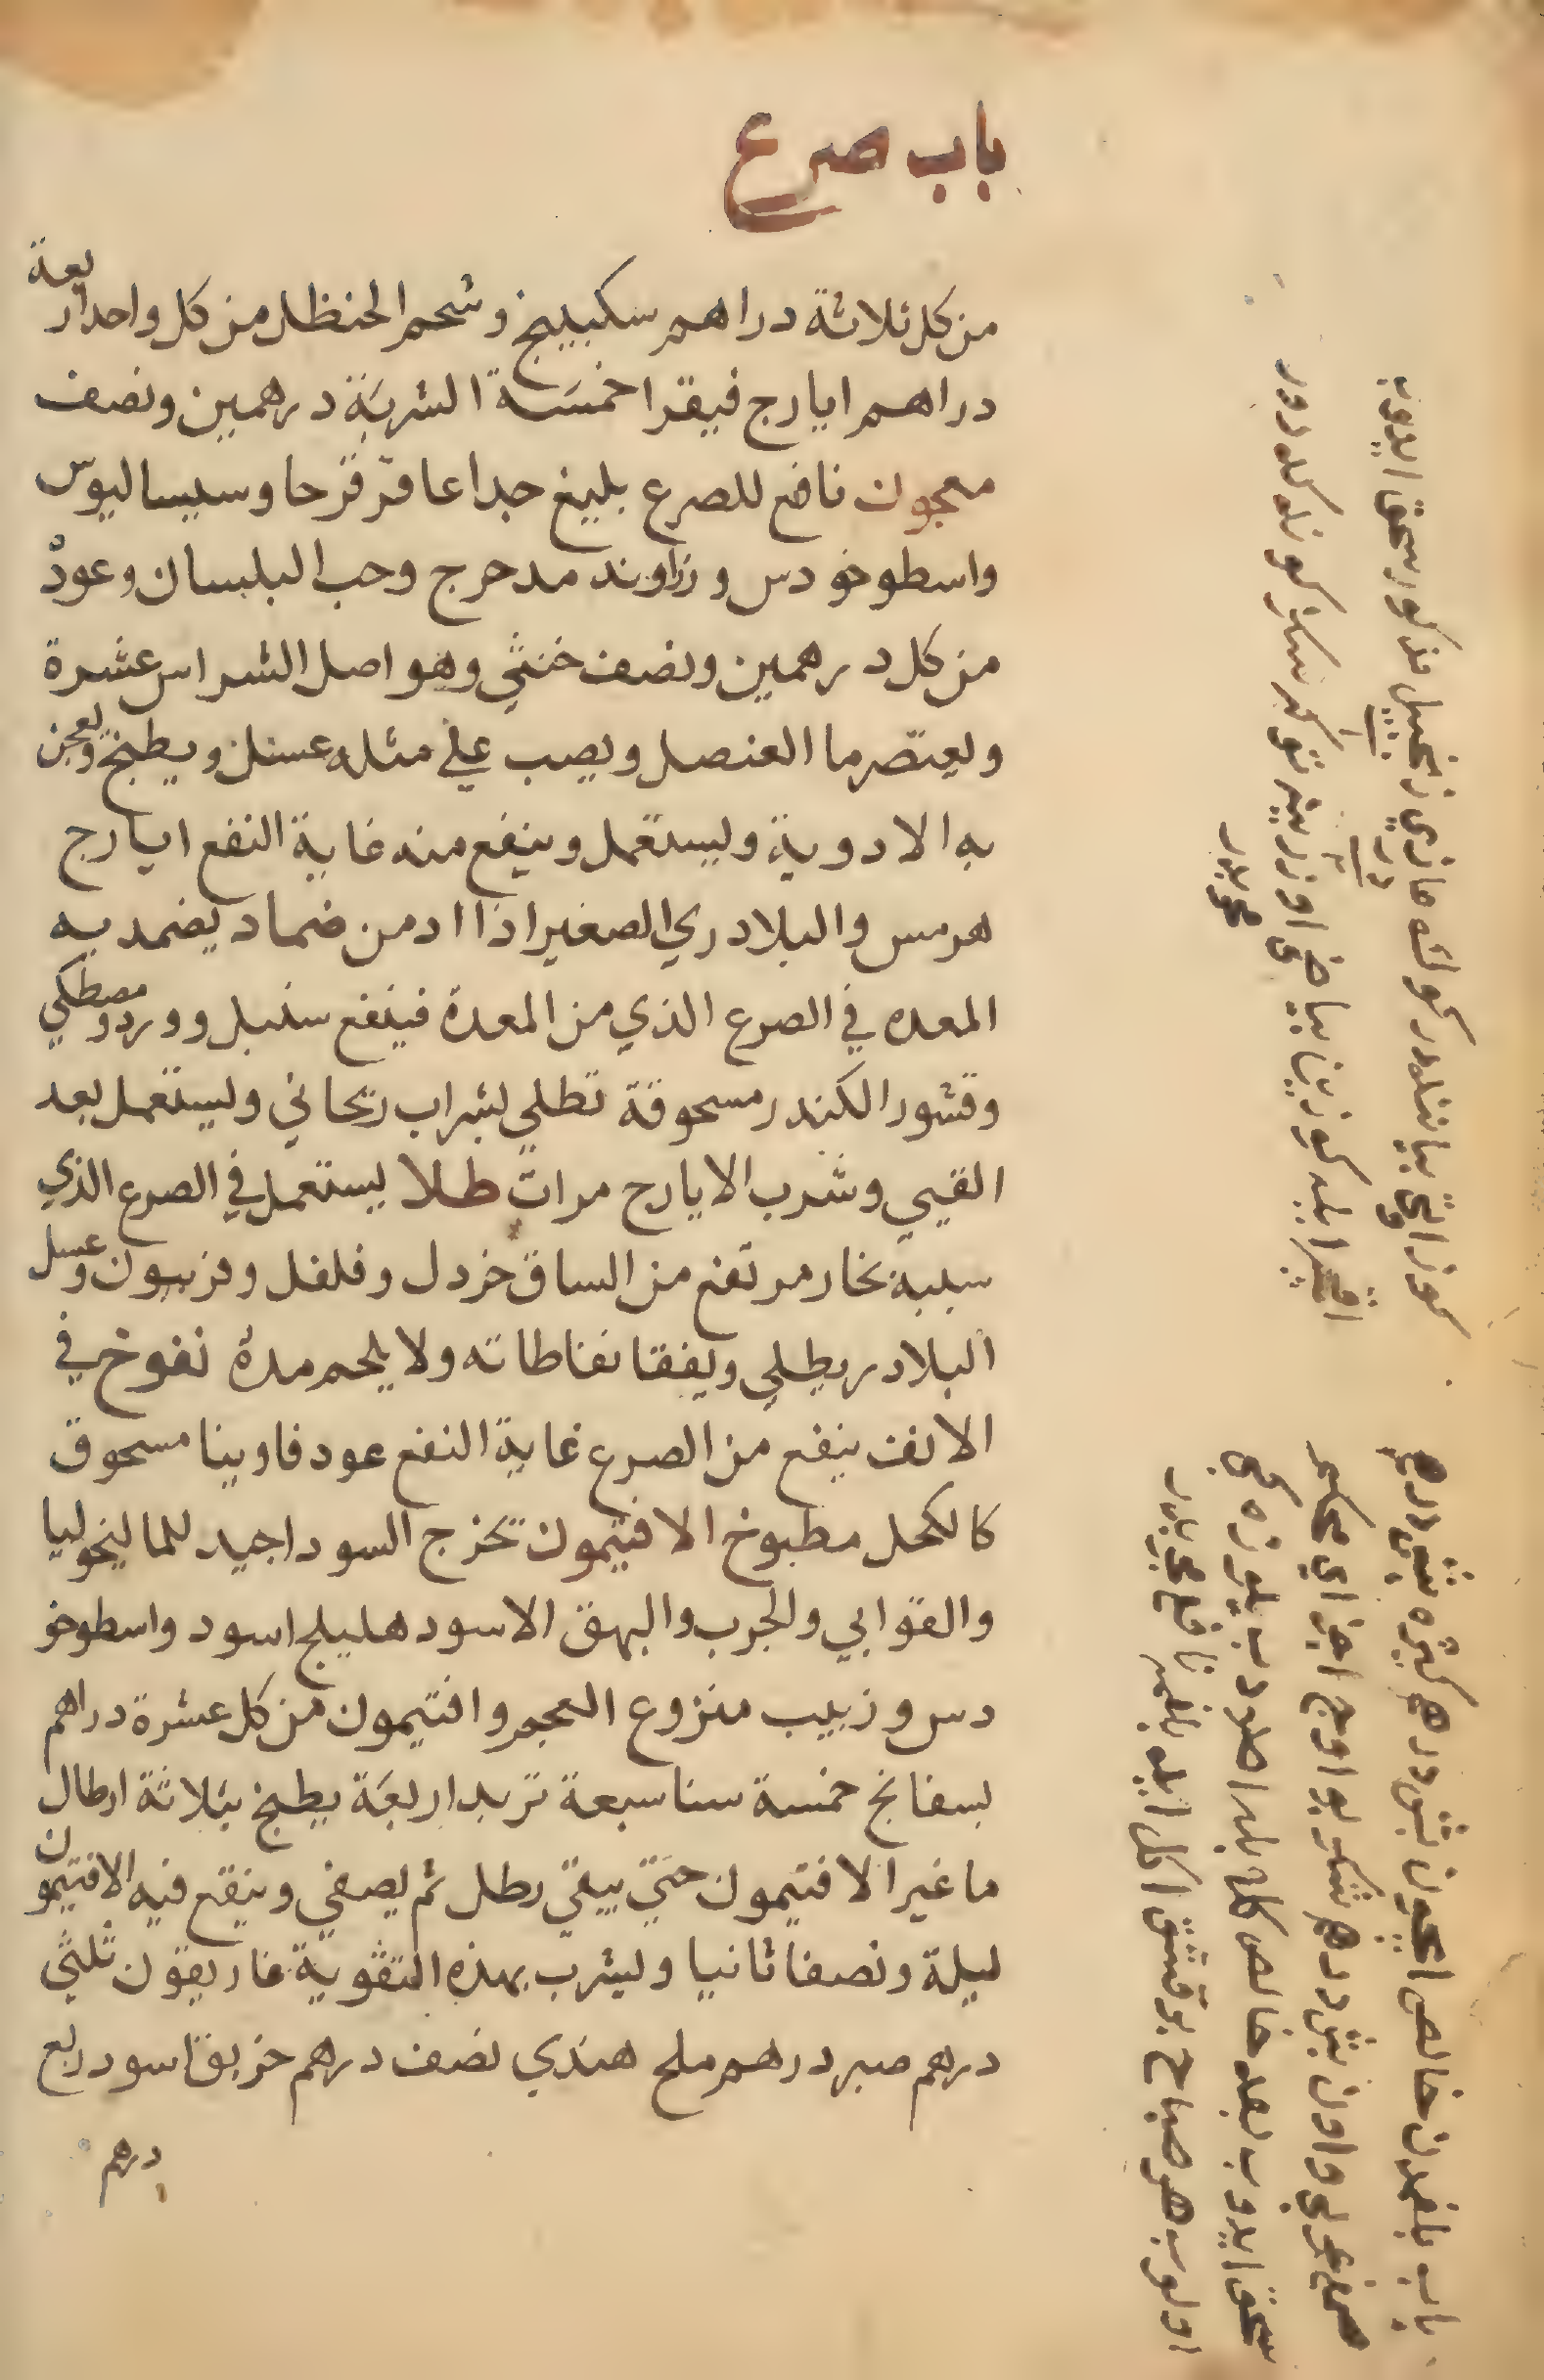 باب صرع
من كل ثلاثة دراهم سكبينج وشحم الحنظل من كل واحد اربعة
دراهم ايارج فيقرا خمسة الشربة درهمين ونصف
معجون نافع للصرع بليغ جدا عاقرقرحا وسيساليوس
واسطوخودس وزراوند مدحرج وحب البلسان وعود
من كل درهمين ونصف خنثي وهو اصل الشراس عشرة
ويعتصر ما العنصل ويصب علي مثله عسل ويطبخ ويعجن
به الادوية ويستعمل وينفع منه غاية النفع ايارج
هرمس والبلادري الصغير اذا ادمن ضماد يضمد به
المعده في الصرع الذي من المعدة فينفع سنبل وورد ومصطكي
وقشور الكندر مسحوقة تطلي بشراب ريحاني ويستعمل بعد
القيي وشرب الايارج مرات طلا يستعمل في الصرع الذي
سببه بخار مرتفع من الساق خردل وفلفل وفربيون وعسل
البلادر يطلي ويفقا نفاطاته ولا يلحم مدة نفوخ في
الانف ينفع من الصرع غاية النفع عود فاوينا مسحوق
كالكحل مطبوخ الافتيمون تخرج السودا جيد للمالينخوليا
والقوابي والجرب والبهق الاسود هليلج اسود واسطوخو
دس وزبيب منزوع العجم وافتيمون من كل عشرة دراهم
بسفانج خمسة سنا سبعة تربد اربعة يطبخ بثلاثة ارطال
ما غير الافتيمون حتي يبقي رطل ثم يصفي وينقع فيه الافتيمون
ليلة ونصفا ثانيا ويشرب بهذه التقوية غاريقون ثلثي
درهم صبر درهم ملح هندي نصف درهم خربق اسود ربع
درهم
باب بلغمدن خالص ايچون بش درهم كثيره بش درهم
صمغ عربي واون بش درهم شكر بو اوچ اجزاي محكم
سحق ايدوب بعده خالص كلاب
اولوب هر صباح بر فستق اكل ايليه بلغمه نافع مجربدر